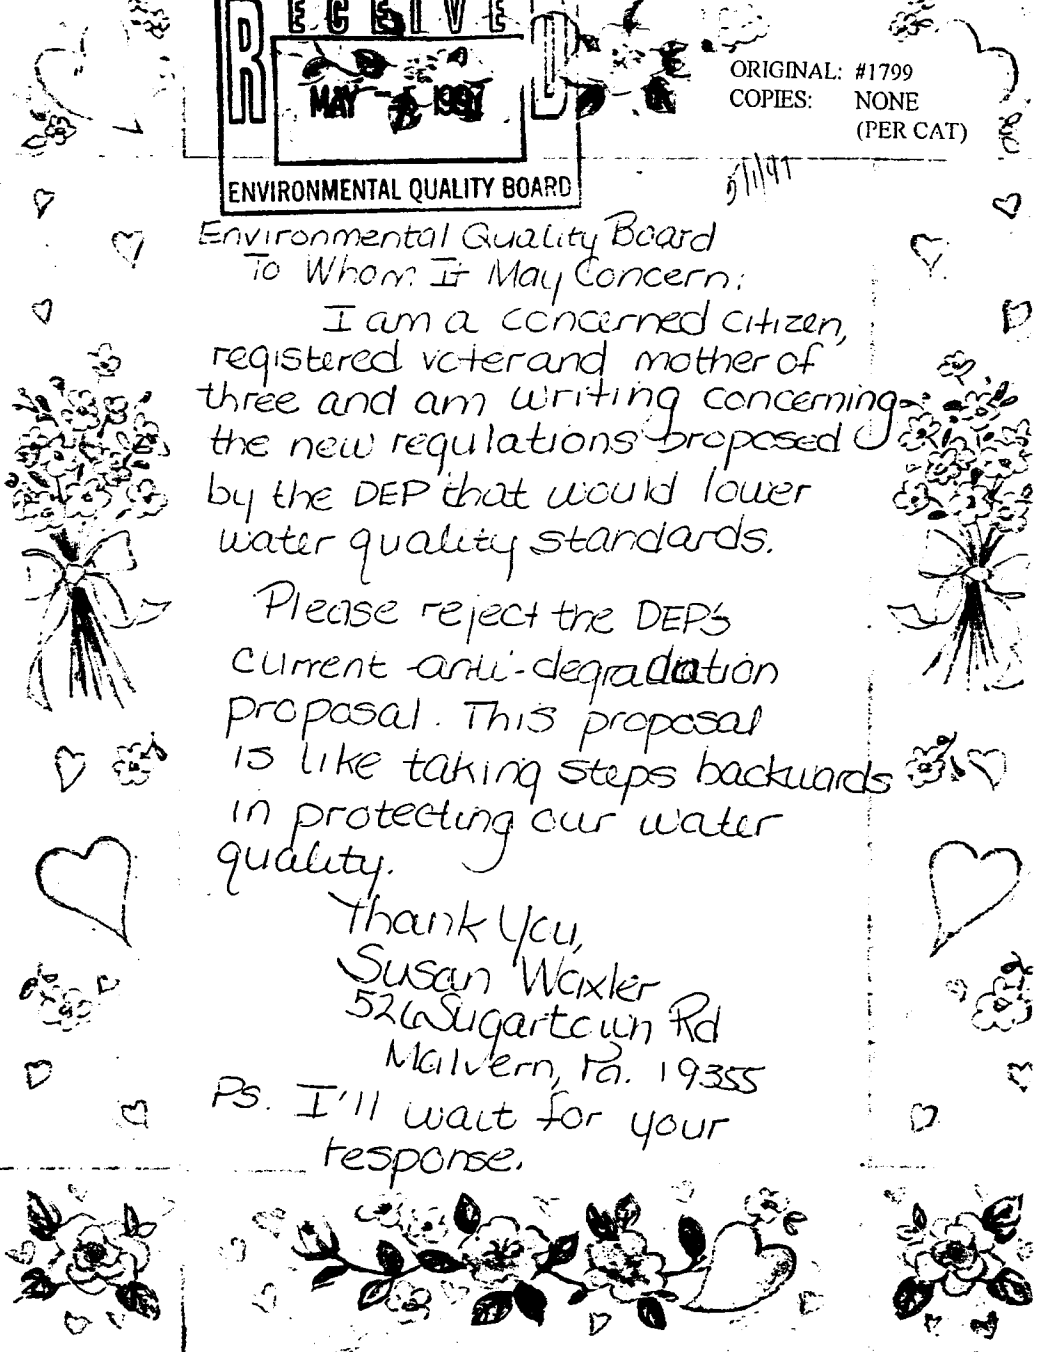 RECEIVED
MAY 1997
ENVIRONMENTAL QUALITY BOARD
ORIGINAL: #1799
COPIES: NONE
(PER CAT)
5/1/97
Environmental Quality Board
To Whom It May Concern:
I am a concerned citizen,
registered voter and mother of
three and am writing concerning
the new regulations proposed
by the DEP that would lower
water quality standards.
Please reject the DEP's
current anti-degradation
proposal. This proposal
is like taking steps backwards
in protecting our water
quality.
Thank You,
Susan Waxler
526 Sugartown Rd
Malvern, Pa. 19355
Ps. I'll wait for your
response.